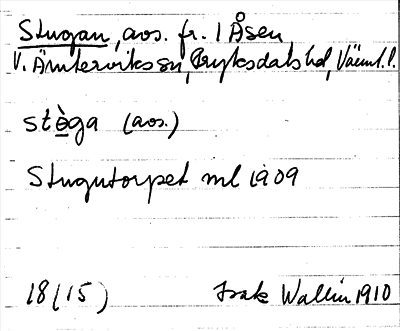 Stugan, avs. fr. 1 Åsen
V. Ämterviks sn, Fryksdals hd, Värml. l.
stèga (avs.)
Stugutorpet ml 1909
18 (15) Isak Wallin 1910